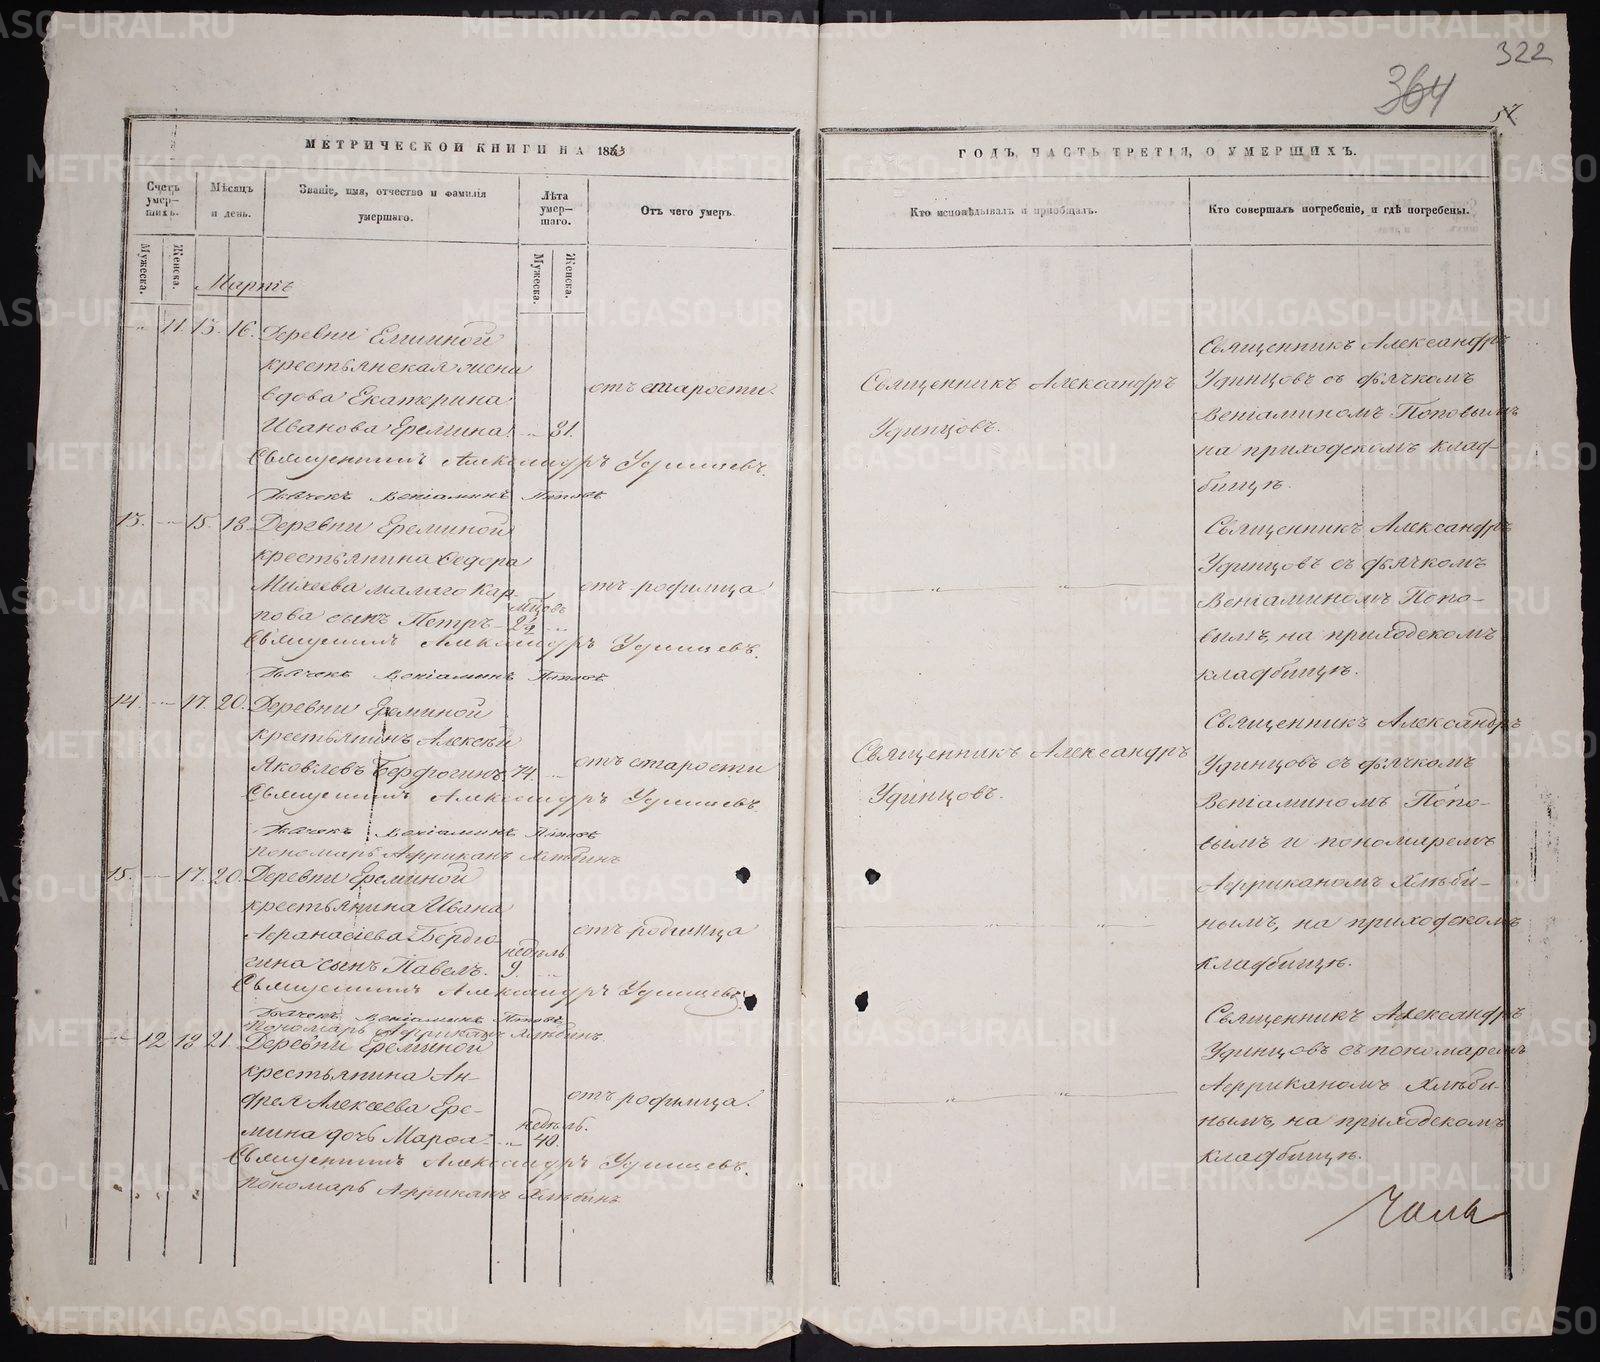 322
364
МЕТРИЧЕСКОЙ КНИГИ НА 1863
ГОДЪ, ЧАСТЬ ТРЕТІЯ, О УМЕРШИХЪ.
Счетъ умер-шихъ.
Мужеска.
Женска.
Мѣсяцъ и день.
Званіе, имя, отчество и фамилія умершаго.
Лѣта умер-шаго.
Мужеска.
Женска.
Отъ чего умеръ.
Кто исповѣдывалъ и пріобщалъ.
Кто совершалъ погребеніе, и гдѣ погребены.
Мартъ
11. 13. 16. Деревни
крестьянская жена
вдова Екатерина
Иванова Еремина. 81.
отъ старости.
Священникъ Александръ
Удинцовъ.
Священникъ Александръ
Удинцовъ съ дьячкомъ
Веніаминомъ Поповымъ
на приходскомъ клад-
бищѣ.
Священникъ Александръ Удинцевъ.
Дьячекъ Веніаминъ Поповъ
13. 15. 18. Деревни Ереминой
крестьянина Ѳедора
Михеева малаго Кар
пова сынъ Петръ
мцовъ
отъ родимца
Священникъ Александръ
Удинцовъ съ дьячкомъ
Веніаминомъ Попо-
вымъ, на приходскомъ
кладбищѣ.
Священникъ Александръ Удинцевъ.
Дьячекъ Веніаминъ Поповъ
14. 17. 20. Деревни Ереминой
крестьянинъ Алексѣй
Яковлевъ Бердюгинъ 74.
отъ старости
Священникъ Александръ
Удинцовъ.
Священникъ Александръ
Удинцовъ съ дьячкомъ
Веніаминомъ Попо-
вымъ и пономаремъ
Африканомъ Хлѣби-
нымъ, на приходскомъ
кладбищѣ.
Священникъ Александръ Удинцевъ.
Дьячекъ Веніаминъ Поповъ
Пономарь Африканъ Хлѣбинъ
15. 17. 20. Деревни Ереминой
крестьянина Ивана
Аѳанасіева Бердю-
гина сынъ Павелъ.
недѣль
9.
отъ родимца
Священникъ Александръ Удинцевъ.
Дьячекъ Веніаминъ Поповъ
Пономарь Африканъ Хлѣбинъ
12 18 21 Деревни Ереминой
крестьянина Ан-
дрея Алексѣева Ере-
мина дочь Марѳа
недѣль.
40.
отъ родимца.
Священникъ Александръ
Удинцовъ съ пономаремъ
Африканомъ Хлѣби-
нымъ, на приходскомъ
кладбищѣ.
Священникъ Александръ Удинцевъ.
Пономарь Африканъ Хлѣбинъ